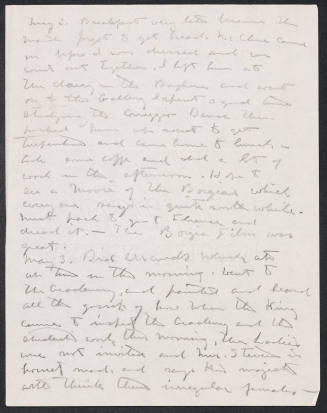 May 2. Breakfast very late because the
maid forgot to get bread. McClure came
in before I was dressed and we
went out together. I left him at
the door in the Borghese and went
out to the Gallery. I spent a good time
studying the Correggio Danae then
some went to get
and came home to lunch,
had some coffee and did a lot of
work in the afternoon. Hope to
see a Movie of the Borgias which
everyone says is quite worth while.
Must pack to go to Florence and
dread it. — The Borgia Film was
great.
May 3. Did errands which ate
up time in the morning. Went to
the Academy, and painted and heard
all the gossip of how when the King
came to inspect the Academy and the
students work this morning, the ladies
were not invited and Mrs. Stevens is
hornet mad, and says His Majesty
will think them irregular females —